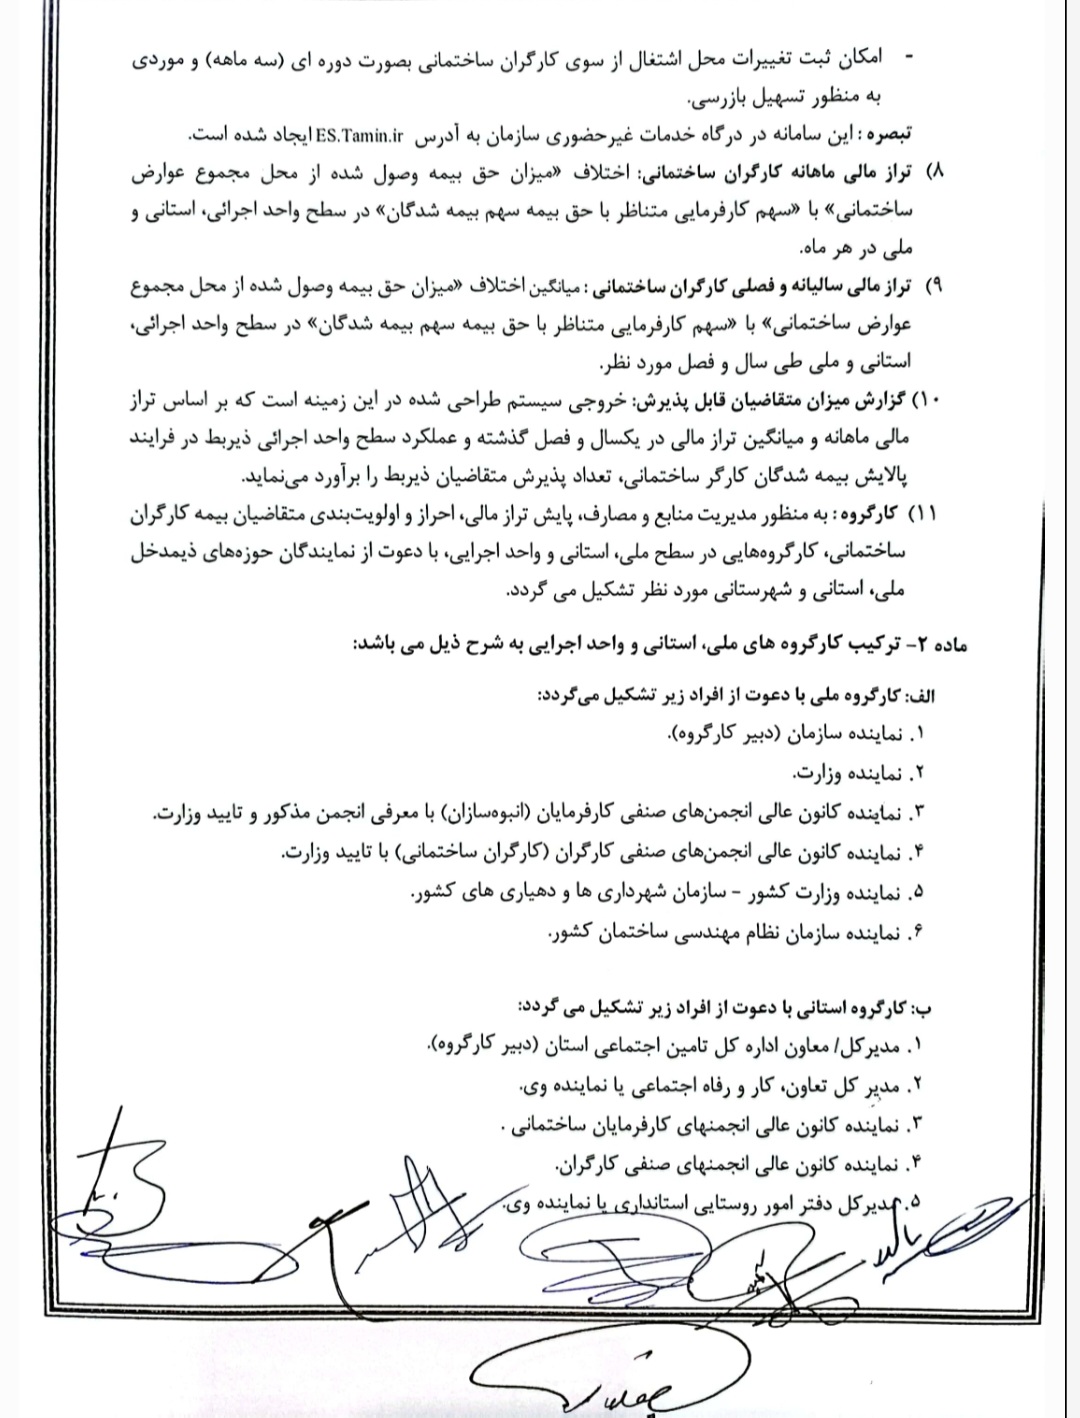 - امکان ثبت تغییرات محل اشتغال از سوی کارگران ساختمانی بصورت دوره ای (سه ماهه) و موردی
به منظور تسهیل بازرسی.
تبصره : این سامانه در درگاه خدمات غیرحضوری سازمان به آدرس ES.Tamin.ir ایجاد شده است.
۸) تراز مالی ماهانه کارگران ساختمانی: اختلاف «میزان حق بیمه وصول شده از محل مجموع عوارض
ساختمانی» با «سهم کارفرمایی متناظر با حق بیمه سهم بیمه شدگان» در سطح واحد اجرائی، استانی و
ملی در هر ماه.
۹) تراز مالی سالیانه و فصلی کارگران ساختمانی : میانگین اختلاف «میزان حق بیمه وصول شده از محل مجموع
عوارض ساختمانی» با «سهم کارفرمایی متناظر با حق بیمه سهم بیمه شدگان» در سطح واحد اجرائی،
استانی و ملی طی سال و فصل مورد نظر.
۱۰) گزارش میزان متقاضیان قابل پذیرش: خروجی سیستم طراحی شده در این زمینه است که بر اساس تراز
مالی ماهانه و میانگین تراز مالی در یکسال و فصل گذشته و عملکرد سطح واحد اجرائی ذیربط در فرایند
پالایش بیمه شدگان کارگر ساختمانی، تعداد پذیرش متقاضیان ذیربط را برآورد می‌نماید.
۱۱) کارگروه : به منظور مدیریت منابع و مصارف، پایش تراز مالی، احراز و اولویت‌بندی متقاضیان بیمه کارگران
ساختمانی، کارگروه‌هایی در سطح ملی، استانی و واحد اجرایی، با دعوت از نمایندگان حوزه‌های ذیمدخل
ملی، استانی و شهرستانی مورد نظر تشکیل می گردد.
ماده ۲- ترکیب کارگروه های ملی، استانی و واحد اجرایی به شرح ذیل می باشد:
الف: کارگروه ملی با دعوت از افراد زیر تشکیل می‌گردد:
۱. نماینده سازمان (دبیر کارگروه).
۲. نماینده وزارت.
۳. نماینده کانون عالی انجمن‌های صنفی کارفرمایان (انبوه‌سازان) با معرفی انجمن مذکور و تایید وزارت.
۴. نماینده کانون عالی انجمن‌های صنفی کارگران (کارگران ساختمانی) با تایید وزارت.
۵. نماینده وزارت کشور - سازمان شهرداری ها و دهیاری های کشور.
۶. نماینده سازمان نظام مهندسی ساختمان کشور.
ب: کارگروه استانی با دعوت از افراد زیر تشکیل می گردد:
۱. مدیرکل/ معاون اداره کل تامین اجتماعی استان (دبیر کارگروه).
۲. مدیر کل تعاون، کار و رفاه اجتماعی یا نماینده وی.
۳. نماینده کانون عالی انجمنهای کارفرمایان ساختمانی .
۴. نماینده کانون عالی انجمنهای صنفی کارگران.
۵. مدیرکل دفتر امور روستایی استانداری یا نماینده وی.